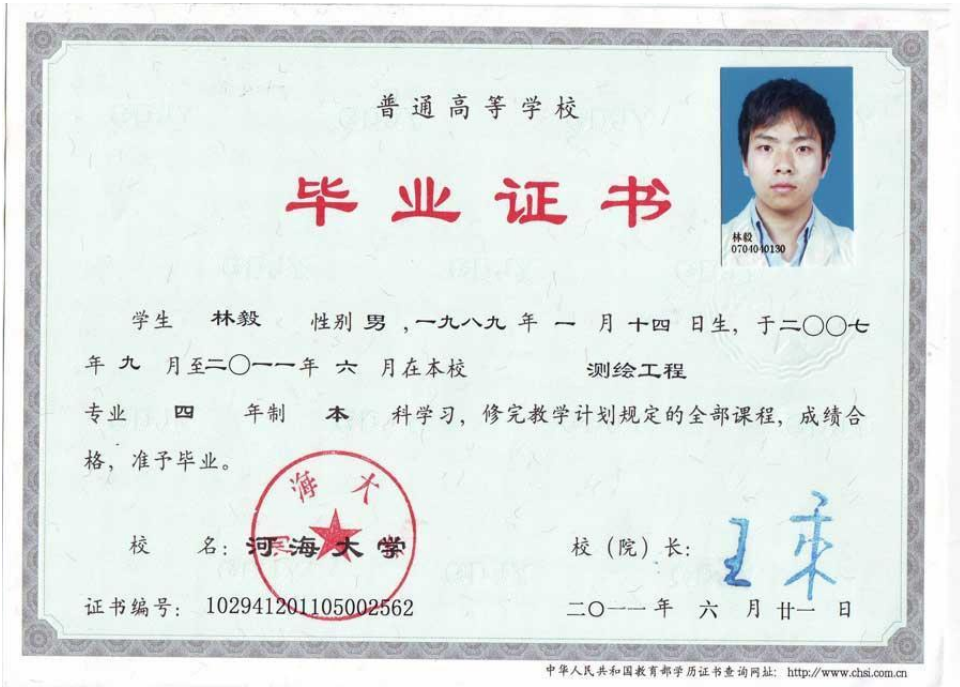 普通高等学校
毕业证书
林毅
0704040130
学生 林毅 性别 男 ,一九八九 年 一 月 十四 日生, 于二〇〇七
年 九 月至二〇一一年 六 月在本校 测绘工程
专业 四 年制 本 科学习, 修完教学计划规定的全部课程, 成绩合
格, 准予毕业。
河海大学
校 名: 河海大学 校(院)长:
证书编号: 102941201105002562 二〇一一年 六 月 廿一 日
中华人民共和国教育部学历证书查询网址: http://www.chsi.com.cn